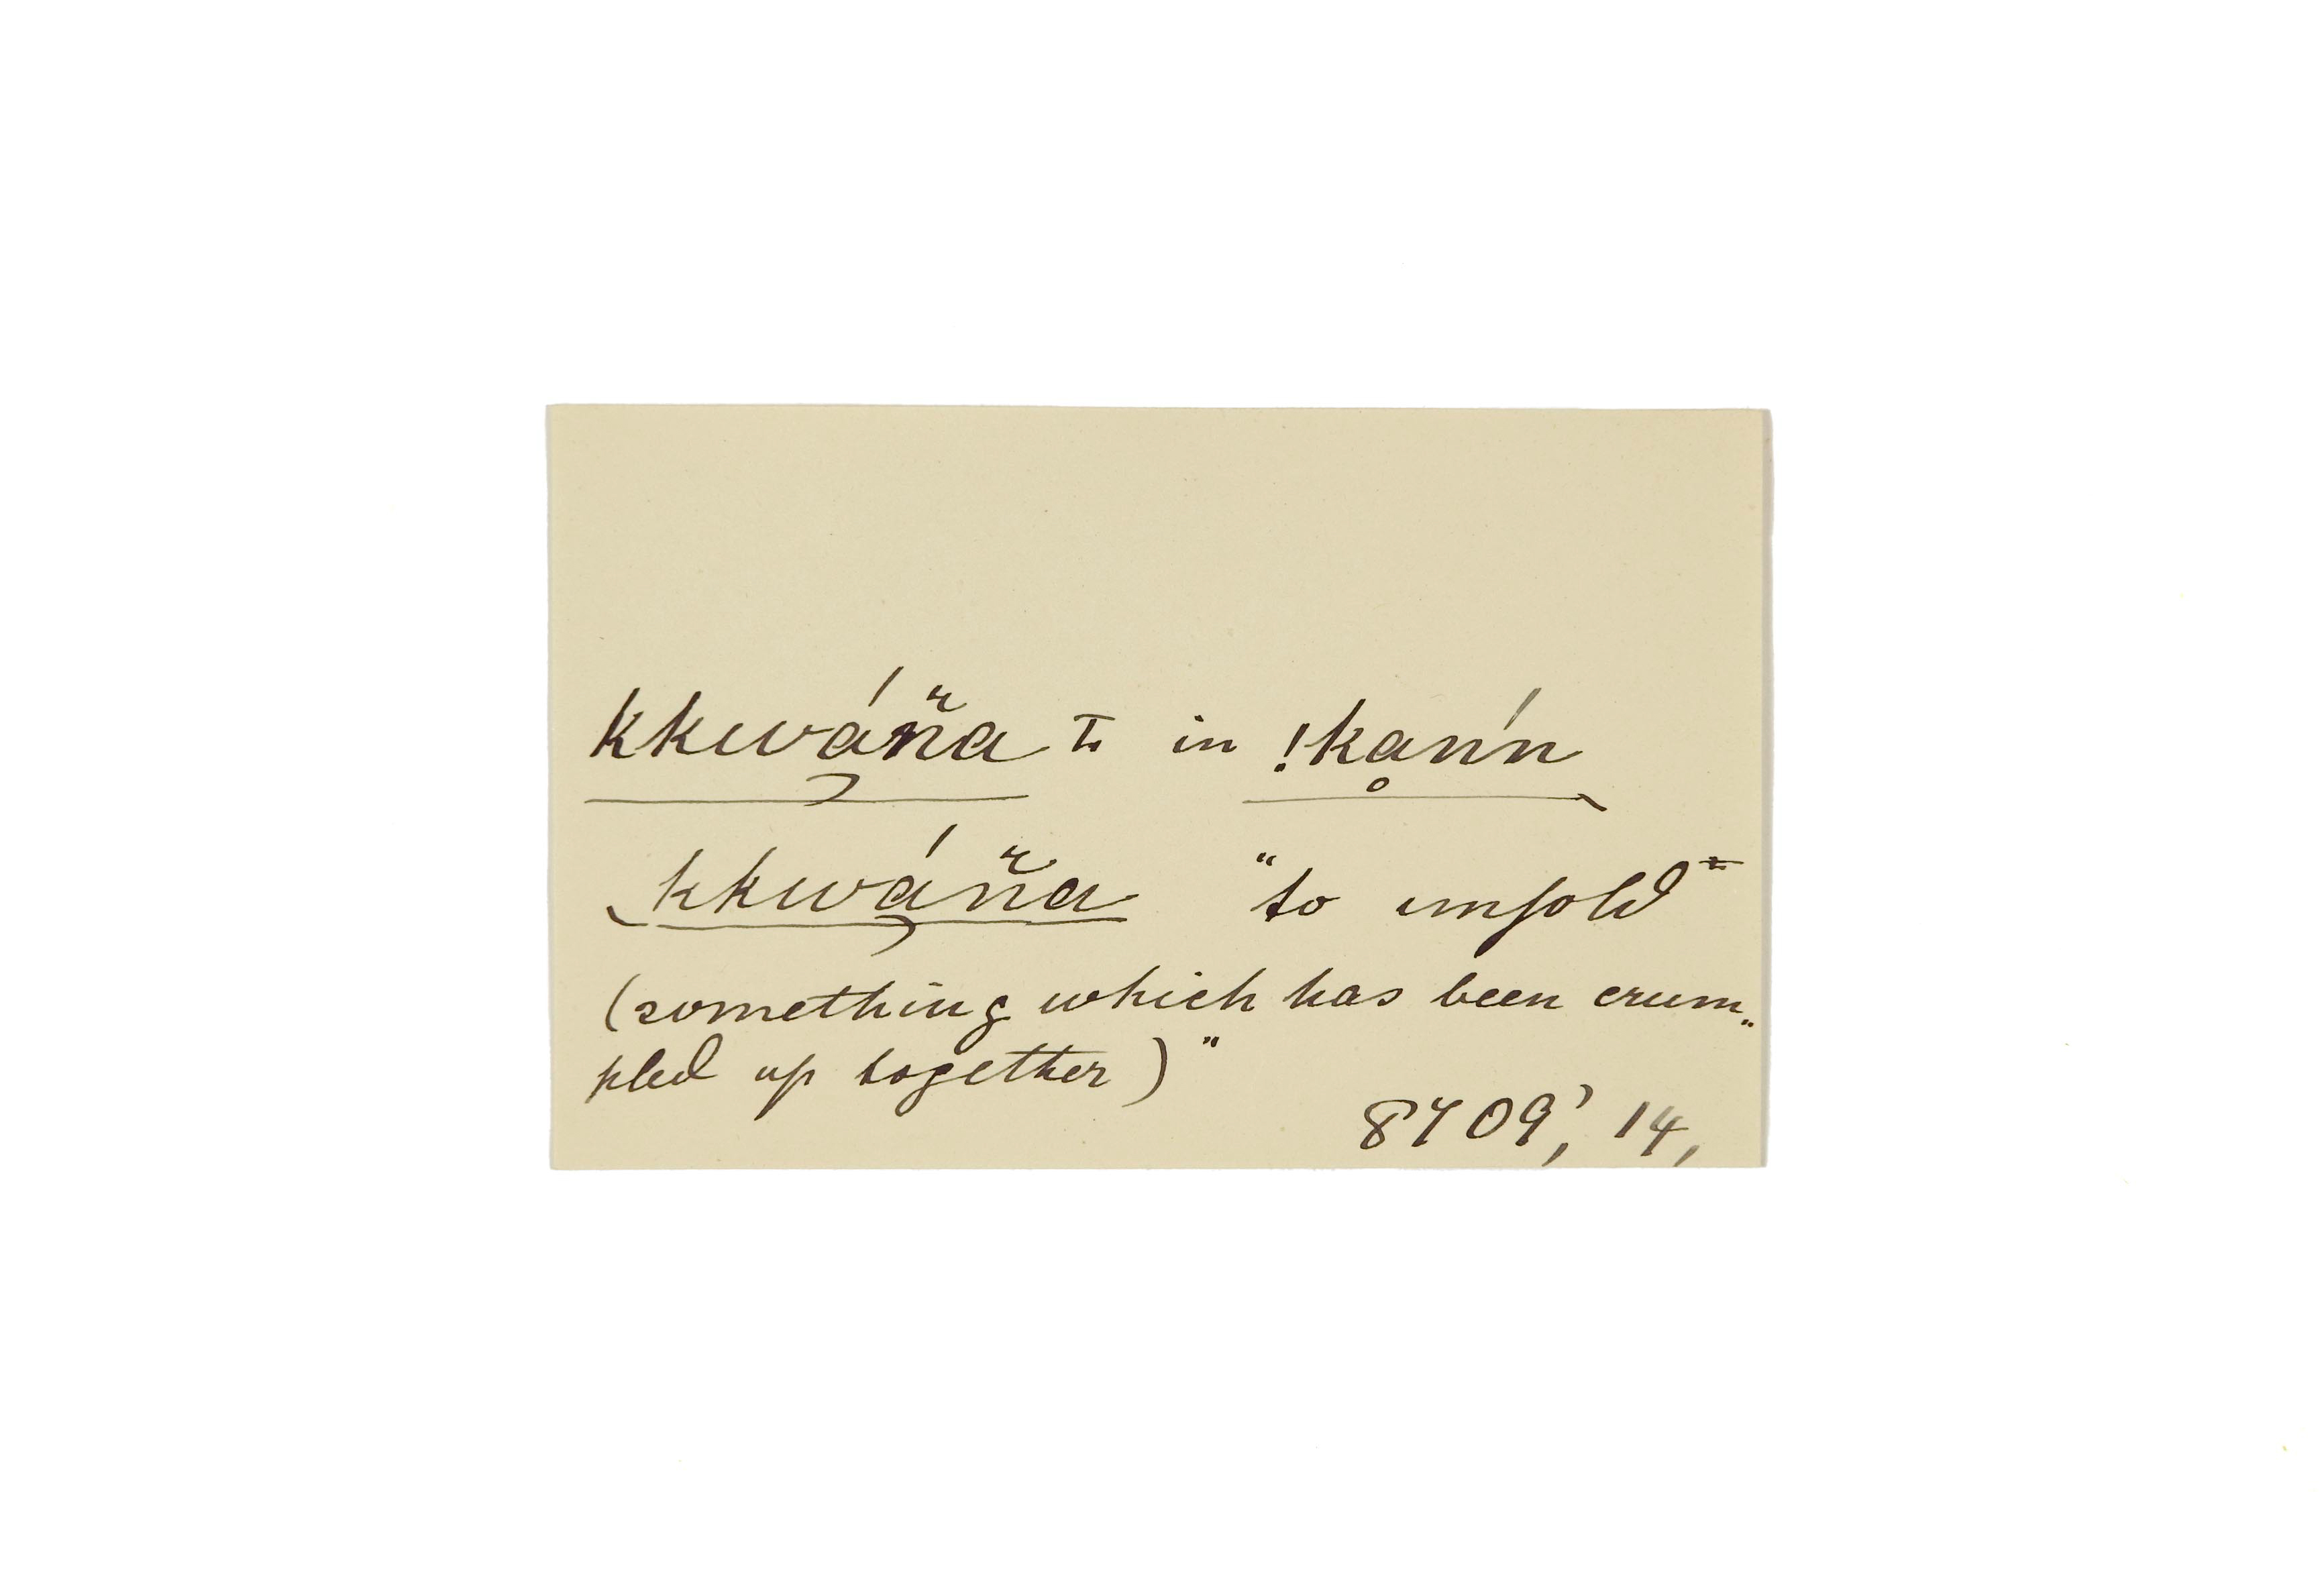 kkwáña to in !kan̍n
kkwáña "to unfold
(something which has been crum„
pled up together)"
8709', 14,